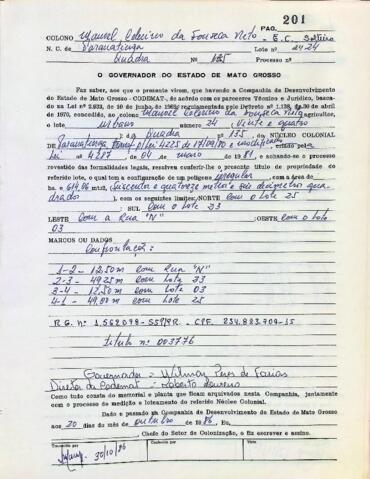 PAG. 201
COLONO Manoel Celerino da Fonseca Neto - E.C. Solteiro
N. C. de Paranatinga Lote nº 24
Quadra Nº 135 Processo nº
O GOVERNADOR DO ESTADO DE MATO GROSSO
Faz saber, aos que o presente virem, que havendo a Companhia de Desenvolvimento
do Estado de Mato Grosso - CODEMAT-, de acôrdo com os pareceres Técnico e Jurídico, basea-
da na Lei nº 2.933, de 10 de junho, de regulamentada pelo Decreto nº 1.138, de 30 de abril
de 1970, concedido, ao colono Manoel Celerino da Fonseca Neto agricultor,
o lote urbano número 24 - Vinte e quatro
da quadra nº 135, do NÚCLEO COLONIAL
DE Paranatinga 4225 de 17/09/80 e modificada criado pela
Lei nº 4.287 de 04 de maio de 1981, e achando-se o processo
revestido das formalidades legais, resolveu conferir-lhe o presente título de propriedade do
referido lote, o qual tem a configuração de um polígono irregular, com a área de
614,06 mts2, (Seiscentos e quatorze metros e seis decímetros qua-
drados), com os seguintes limites: NORTE com o lote 25
SUL com o lote 23
LESTE com a Rua "N" ; OESTE com o lote
03
MARCOS OU DADOS
Confrontações:
1-2 - 12,50m com Rua "N"
2-3 - 49,25m com lote 23
3-4 - 12,50 m com lote 03
4-1 - 49,00 m com lote 25
R.G. nº 1.562.098-SSP/PR. - CPF. 234.883.709-15
título nº 003776
Governador = Wilmar Peres de Farias
Diretor da Codemat - Roberto Loureiro
Como tudo consta do memorial e planta que ficam arquivados nesta Companhia, juntamente
com o processo de medição e loteamento do referido Núcleo Colonial.
Dado e passado na Companhia de Desenvolvimento do Estado de Mato Grosso
aos 20 dias do mês de outubro de 1986 Eu,
Chefe do Setor de Colonização, o fiz escrever e assino.
Conferido Visto
30/10/86